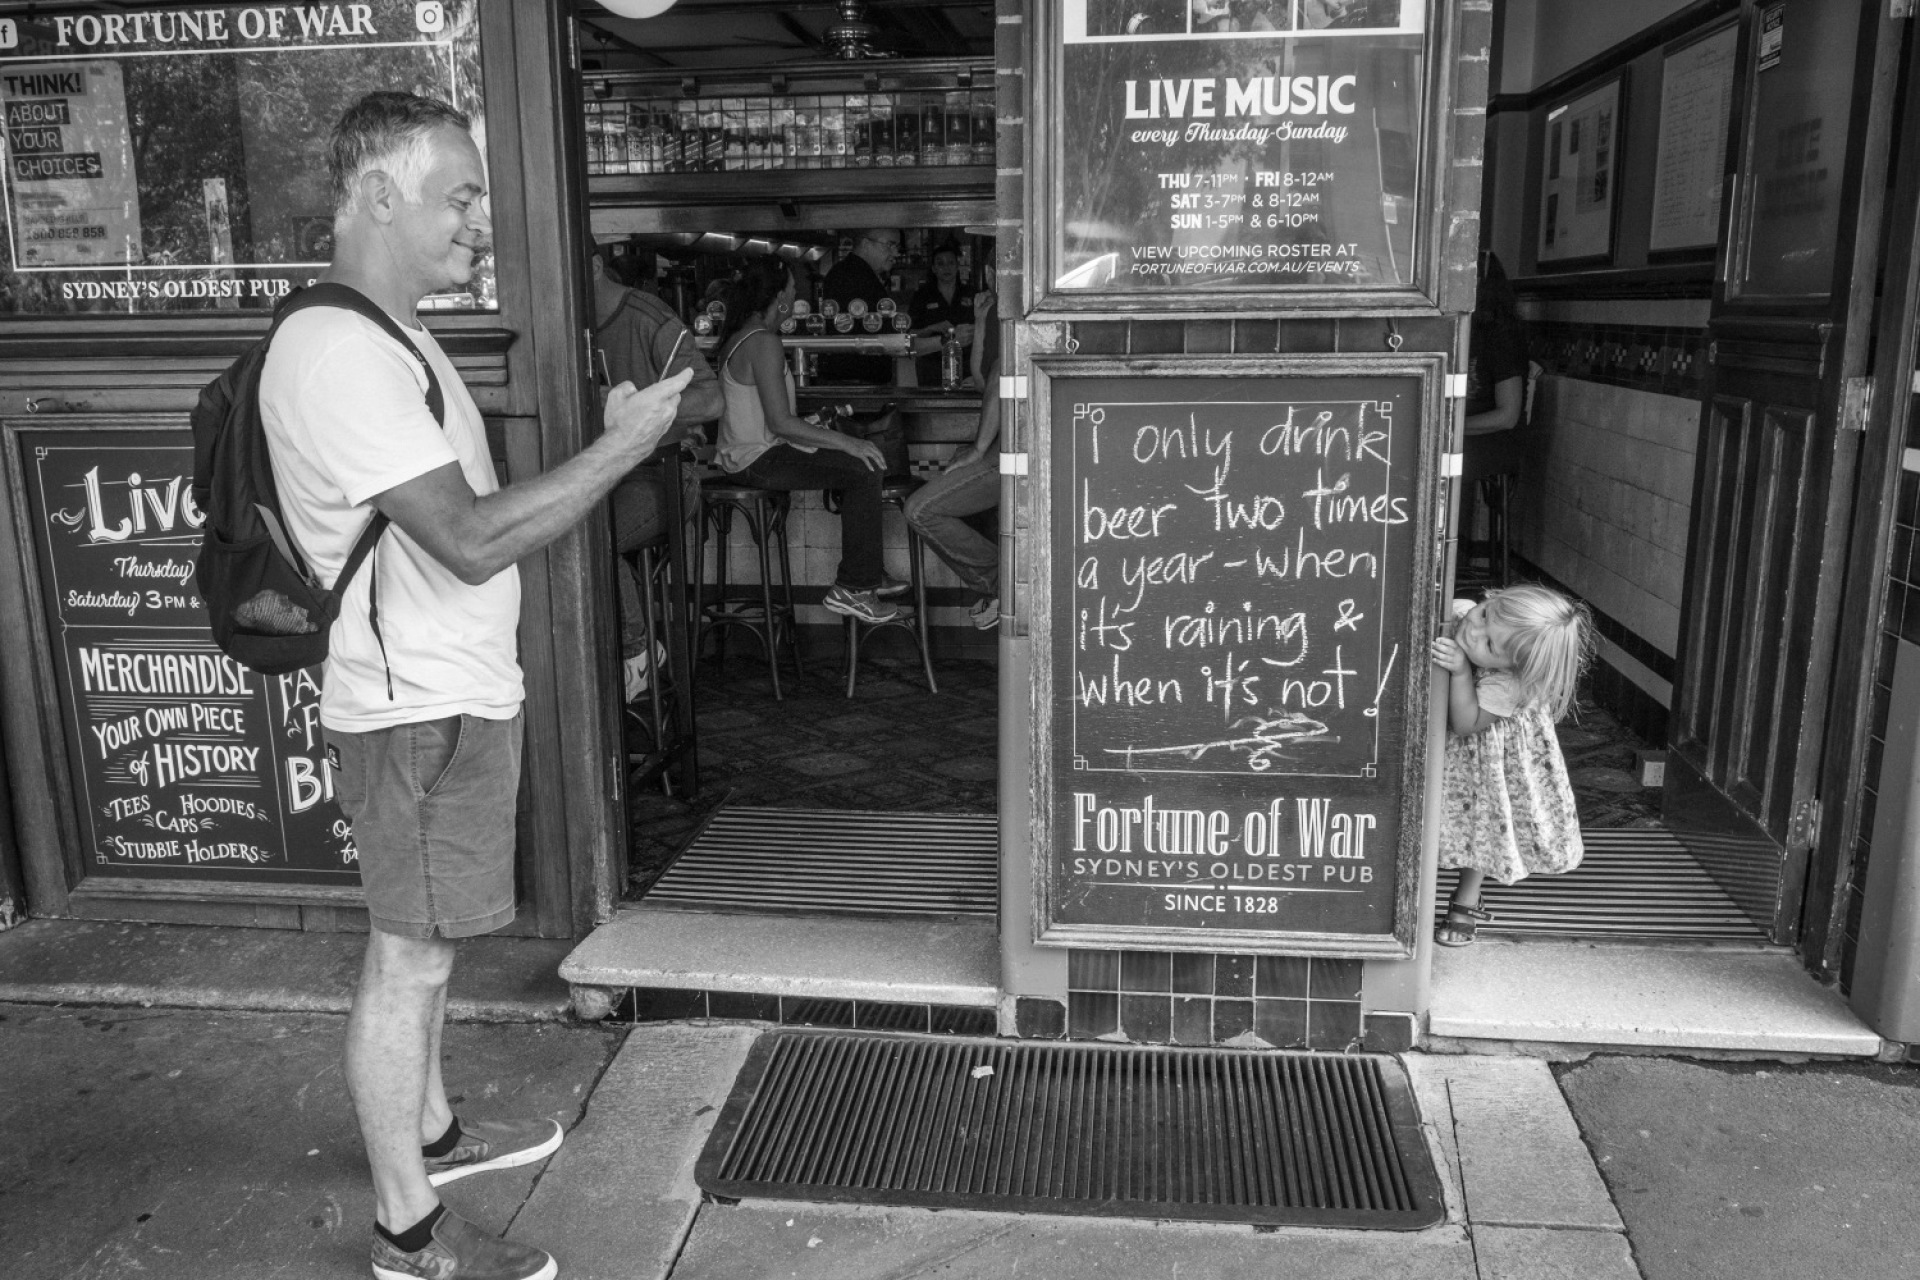 FORTUNE OF WAR
THINK!
ABOUT
YOUR
CHOICES
1800 858 858
SYDNEY'S OLDEST PUB
Live
Thursday
Saturday 3 PM &
MERCHANDISE
YOUR OWN PIECE
of HISTORY
TEES HOODIES
CAPS
STUBBIE HOLDERS
LIVE MUSIC
every Thursday-Sunday
THU 7-11PM · FRI 8-12AM
SAT 3-7PM & 8-12AM
SUN 1-5PM & 6-10PM
VIEW UPCOMING ROSTER AT
FORTUNEOFWAR.COM.AU/EVENTS
i only drink
beer two times
a year - when
it's raining &
when it's not!
Fortune of War
SYDNEY'S OLDEST PUB
SINCE 1828